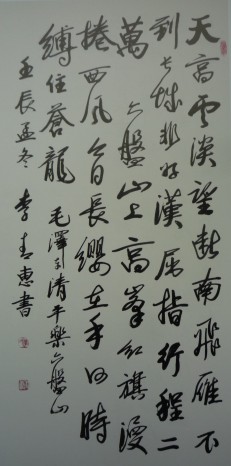 天高雲淡望斷南飛雁不
到长城非好漢屈指行程二
萬六盤山上高峯紅旗漫
捲西風今日長纓在手何時
縛住蒼龍 毛澤东清平樂六盤山
壬辰孟冬 李青惠書